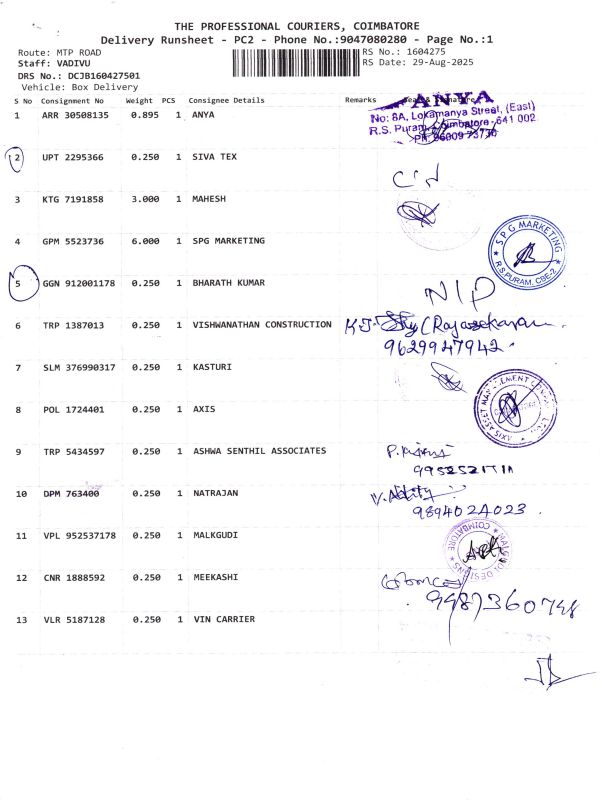 THE PROFESSIONAL COURIERS, COIMBATORE
Delivery Runsheet - PC2 - Phone No.:9047080280 - Page No.:1
Route: MTP ROAD RS No.: 1604275
Staff: VADIVU RS Date: 29-Aug-2025
DRS No.: DCJB160427501
Vehicle: Box Delivery
S No Consignment No Weight PCS Consignee Details Remarks
1 ARR 30508135 0.895 1 ANYA
ANYA
No: 8A, Lokamanya Street, (East)
R.S. Puram, Coimbatore - 641 002
2 UPT 2295366 0.250 1 SIVA TEX
3 KTG 7191858 3.000 1 MAHESH
4 GPM 5523736 6.000 1 SPG MARKETING
SPG MARKETING
R.S PURAM, CBE-2
5 GGN 912001178 0.250 1 BHARATH KUMAR
6 TRP 1387013 0.250 1 VISHWANATHAN CONSTRUCTION
9629947942
7 SLM 376990317 0.250 1 KASTURI
AXIS ASSET MANAGEMENT
8 POL 1724401 0.250 1 AXIS
9 TRP 5434597 0.250 1 ASHWA SENTHIL ASSOCIATES
10 DPM 763400 0.250 1 NATRAJAN
9894024023
11 VPL 952537178 0.250 1 MALKGUDI
COIMBATORE
DESIGNS
12 CNR 1888592 0.250 1 MEEKASHI
13 VLR 5187128 0.250 1 VIN CARRIER